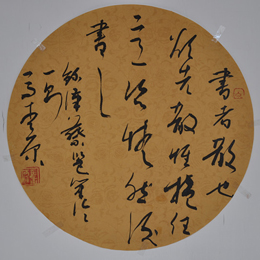 書者散也
欲先散懷抱任
恣性然後
書之
録漢蔡邕筆論
一節